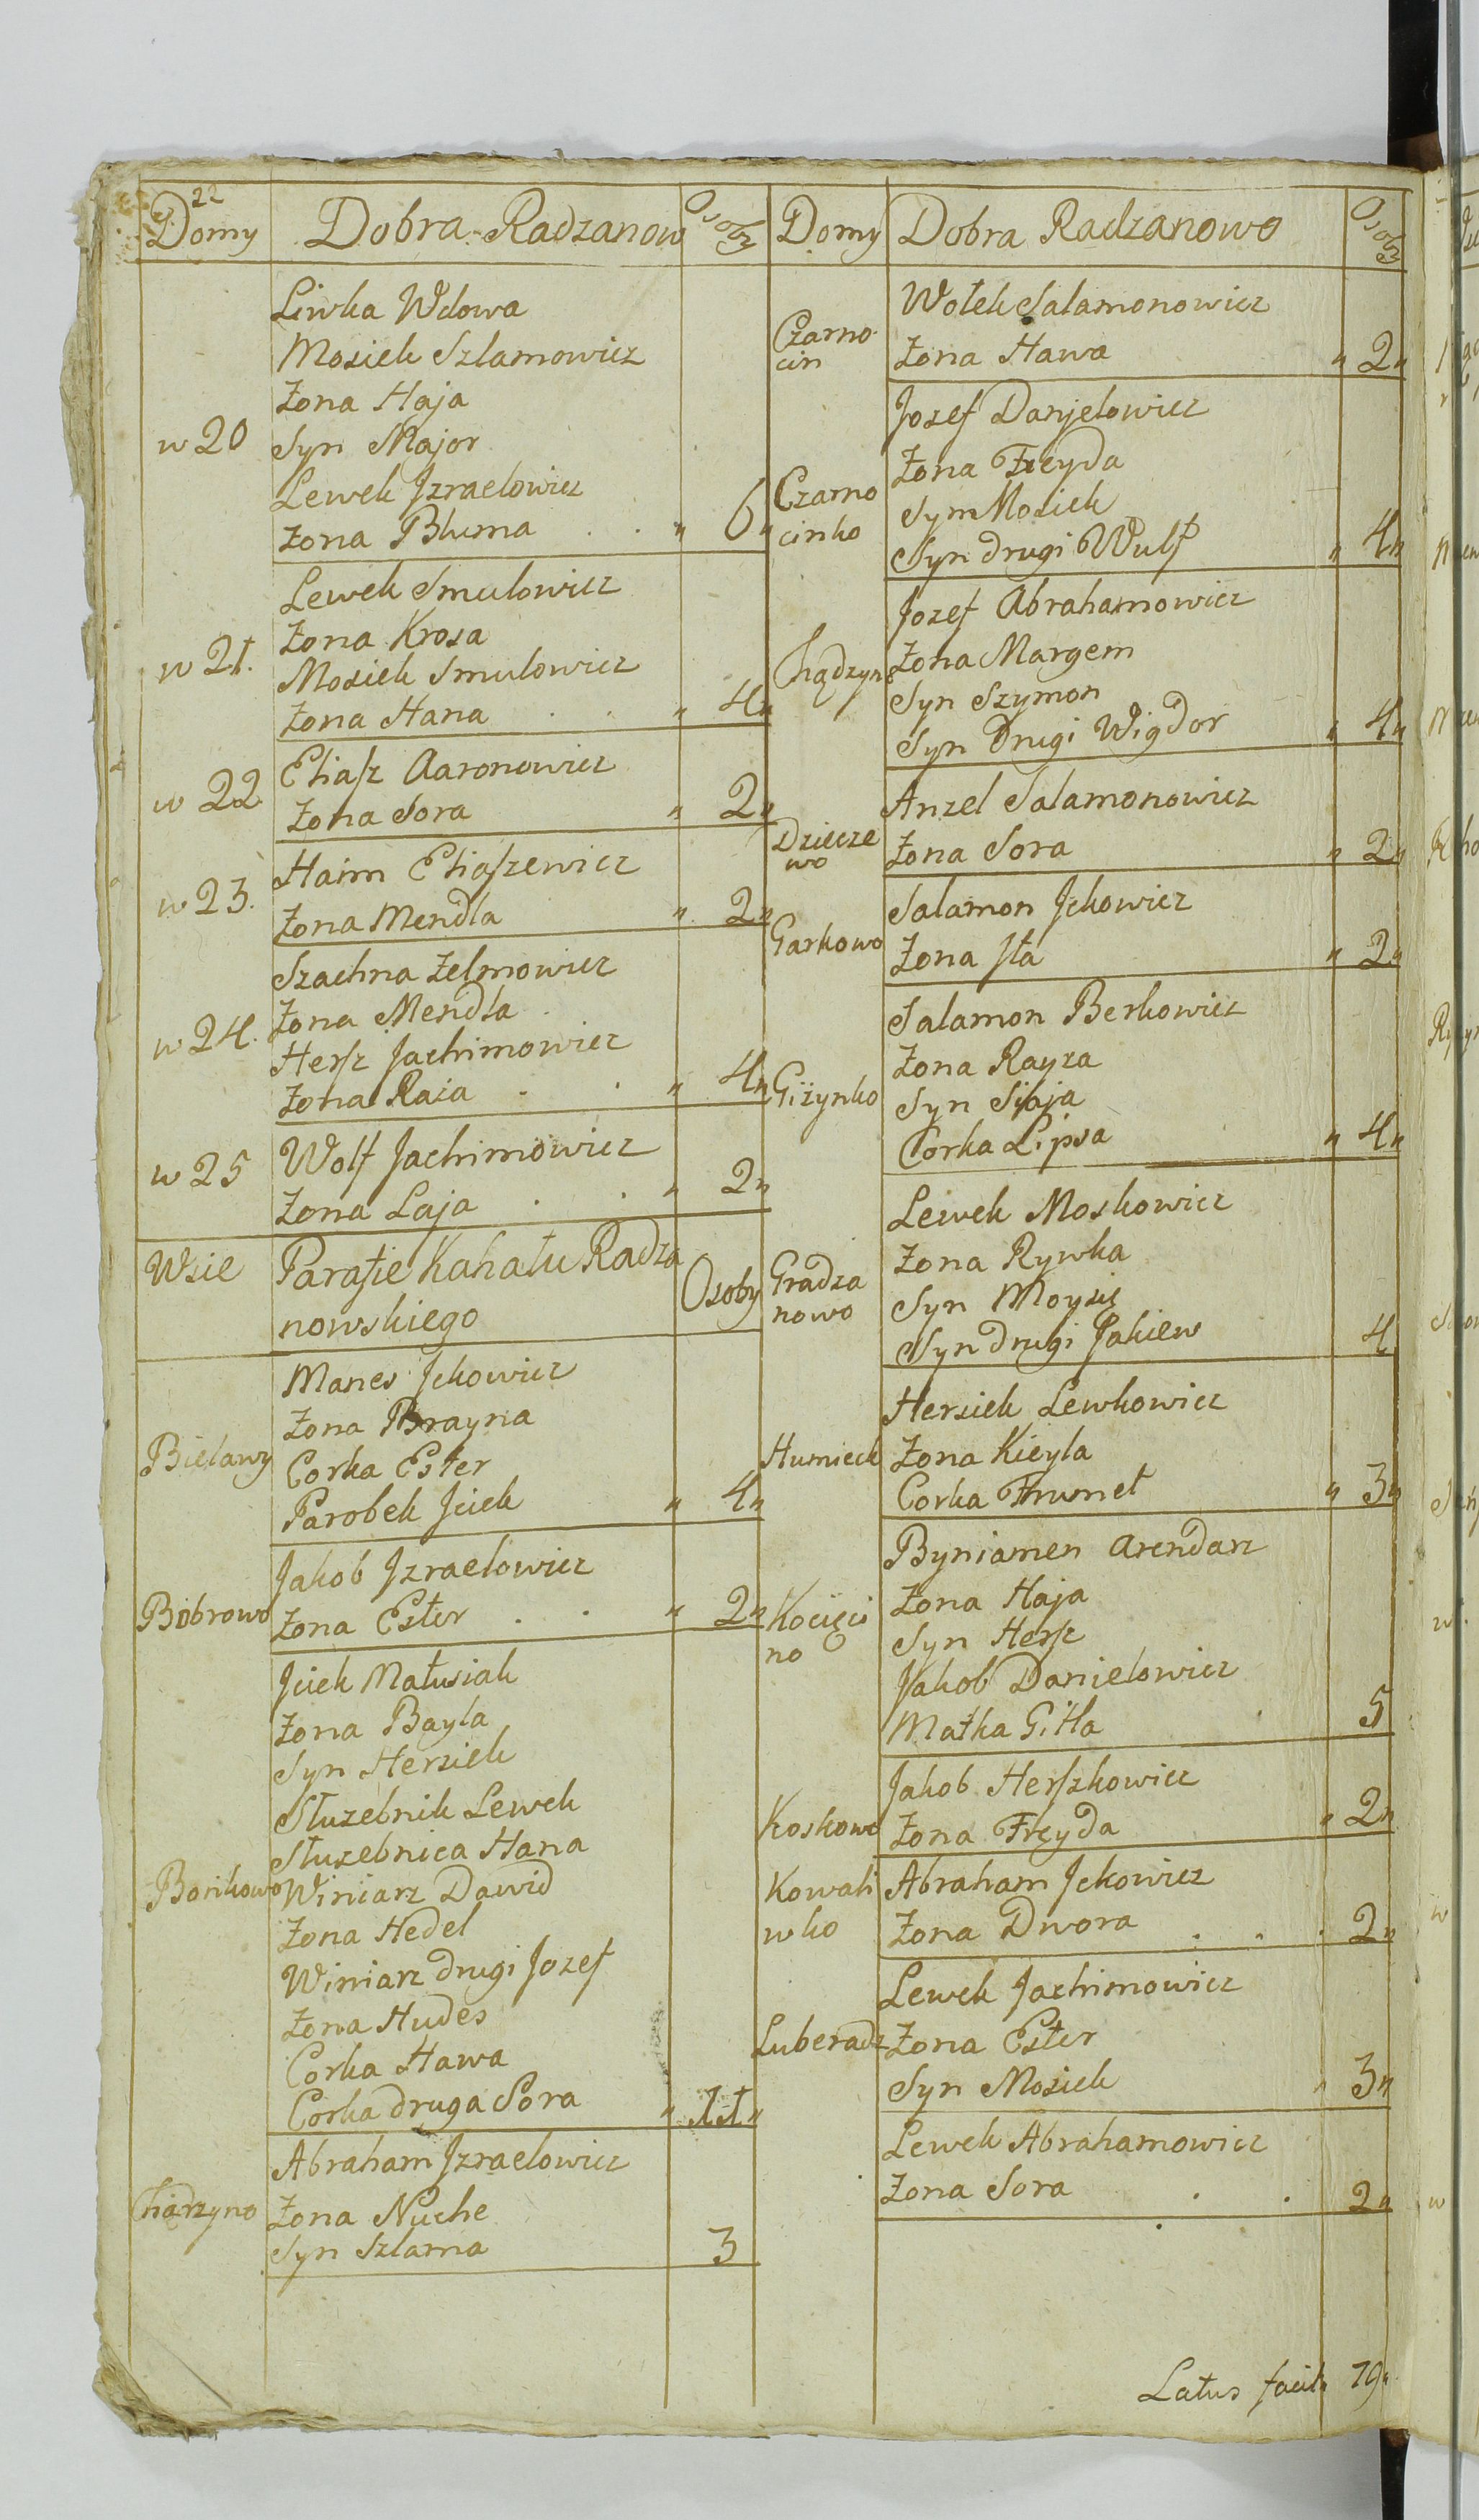 22
Domy Dobra Radzanow Osoby
Liwka Wdowa
Mosiek Szlamowicz
Zona Haja
w 20 Syn Major
Lewek Jzraelowicz
Zona Bluma . . " 6 "
Lewek Smulowicz
Zona Krosa
w 21. Mosiek Smulowicz
Zona Hana . . " 4 "
Eliasz Aaronowicz
w 22 Zona Sora " 2 "
Haim Eliaszewicz
w 23. Zona Mendla " 2 "
Szachna Zelmowicz
Zona Mendla
w 24. Hersz Jachimowicz
Zona Raza . . " 4 "
Wolf Jachimowicz
w 25 Zona Laja . . " 2 "
Wsie Parafie Kahału Radza
nowskiego Osoby
Manes Jckowicz
Zona Brayna
Bielawy Corka Ester
Parobek Jcick " 4 "
Jakob Jzraelowicz
Bobrowo Zona Ester . . " 2 "
Jcick Matusiak
Zona Bayla
Syn Hersiek
Służebnik Lewek
Służebnica Hana
Bońkowo Winiarz Dawid
Zona Hedel
Winiarz drugi Jozef
Zona Hudes
Corka Hawa
Corka druga Sora " 11 "
Abraham Jzraelowicz
Chądzyno Zona Nuche
Syn Szlama 3
Domy Dobra Radzanowo Osoby
Wołek Salamonowicz
Czarno
cin Zona Hawa " 2 "
Jozef Danjelowicz
Zona Freyda
Czarno Syn Mosiek
cinko Syn drugi Wulf " 4 "
Jozef Abrahamowicz
Chądzyn Zona Margem
Syn Szymon
Syn Drugi Wigdor " 4 "
Anzel Salamonowicz
Dziecze
wo Zona Sora " 2 "
Salamon Jckowicz
Garkowo Zona Jta " 2 "
Salamon Berkowicz
Zona Rayza
Giżynko Syn Siaja
Corka Lipsa " 4 "
Lewek Moskowicz
Zona Rywka
Gradza
nowo Syn Moyzie
Syn drugi Jakiew 4
Hersiek Lewkowicz
Humieck Zona Kieyla
Corka Frumet " 3 "
Byniamen Arendarz
Zona Haja
Kocięci
no Syn Hersz
Jakob Danielowicz
Matka Gitla 5
Jakob Herszkowicz
Koskowo Zona Freyda " 2 "
Kowali Abraham Jckowicz
wko Zona Dwora . . . 2 "
Lewek Jachimowicz
Luberadz Zona Ester
Syn Mosiek " 3 "
Lewek Abrahamowicz
Zona Sora . . 2 "
Latus facit " 79 "